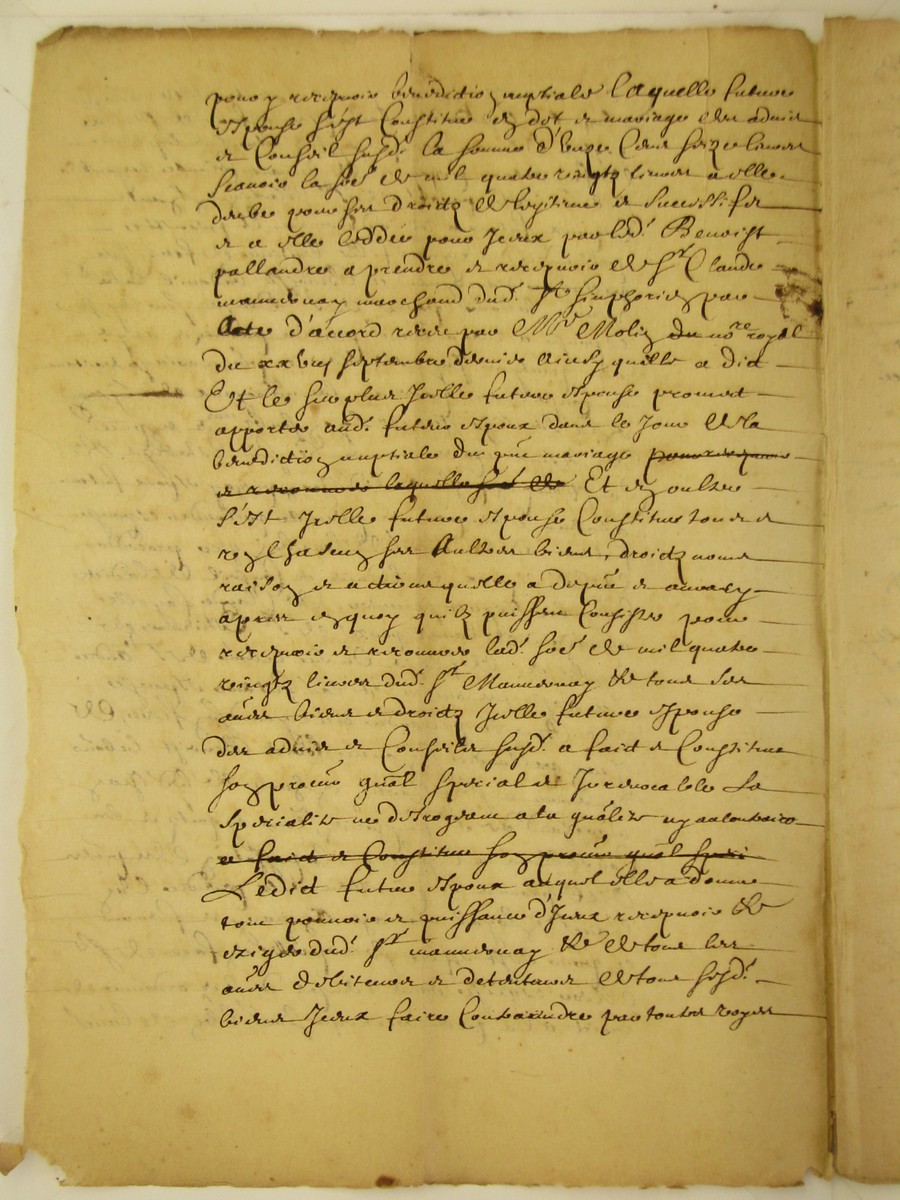 pour y recepvoir bénédiction nuptiale laquelle future
espouse s'est Constitué en dot et mariage des advis
et Conseil susd. la somme d'unze Cens seize livres
scavoir la so.e de mil quatre vingtz livres a elle
deube pour ses droictz de legitime et successifz
et a elle ceddée pour Iceux par led. Benoist
pallandre a prendre et recepvoir de Sr Claude
marchand dud. St Simphorien par
Acte d'acord receu par Me Molin no.re royal
du xxvii septembre dernier ainsy quelle a dict
Et le surplus Icelle future espouse promet
apporter aud. futur espoux dans le Jour de la
bénédiction nuptiale du p.nt mariage pour recepvoir
et recouvrer laquelle so.e de Et en oultre
s'est Icelle future espouse Constitué tous et
ung chascung ses Aultres biens, droictz noms
raisons et actions quelle a de p.nt et aura cy
apres en quoy quilz puissent Consister pour
recepvoir et recouvrer lad. so.e de mil quatre
vingtz livres dud. Sr & tous ses
au.es biens et droictz Icelle future espouse
des advis et Conseils susd. a faict et Constitué
son procu.r gñal special et Irrevocable La
specialite ne desrogeant a la gñalite ny au contraire
a faict et Constitué son procu.r gñal speci
Ledict futur espoux auquel elle a donné
tout pouvoir et puissance d'Iceux recepvoir &
exiger dud. Sr & de tous les
au.es debiteurs et detenteurs de tous sesd.
biens Iceux faire Contraindre par toutes voyes